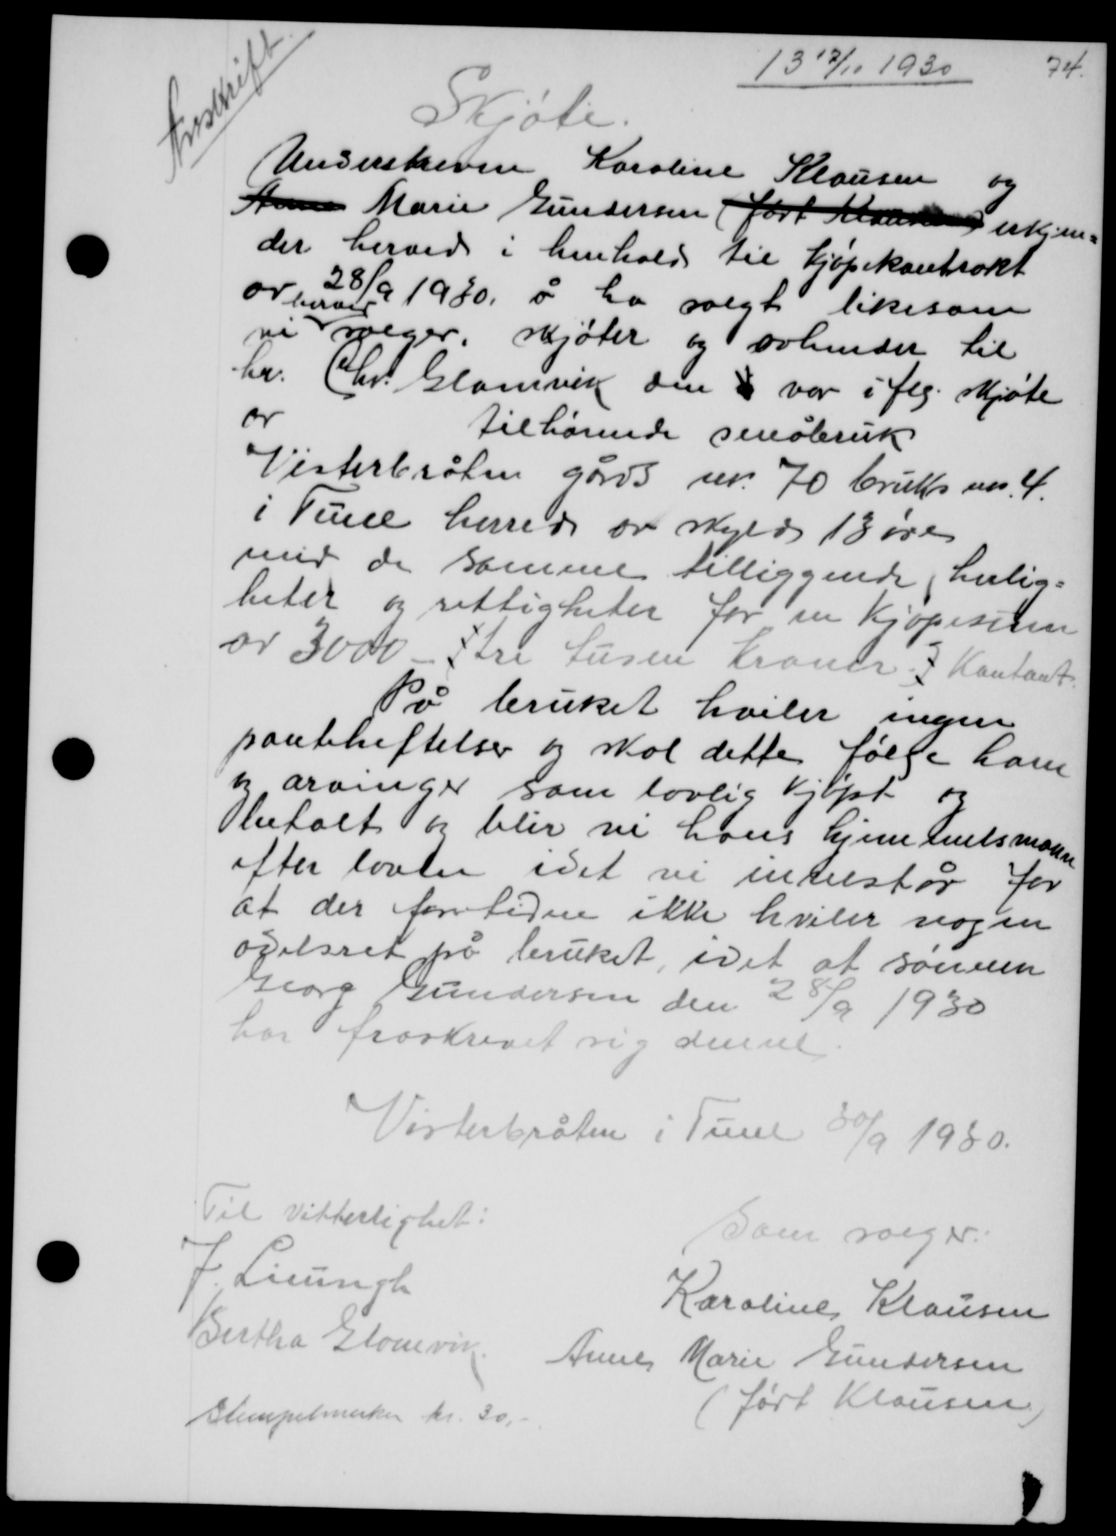 13 17/10 1930
74.
Avskrift
Skjöte.
Underskreven Karoline Klausen og
Anne Marie Gundersen (född Klausen) erkjen=
der herved i henhold til kjöpekontrakt
av 28/9 1930. å ha solgt likesom
vi herved selger, skjöter og avhender til
hr. Chr. Glomvik den vor iflg. skjöte
av tilhörende småbruk
Visterbråten gårds nr. 70 bruks nr. 4.
i Tune herred av skyld 13 öre
med de samme tilliggende herlig=
heter og rettigheter for en kjöpesum
av 3000 - tre tusen kroner - kontant.
På bruket hviler ingen
pantheftelser og skal dette följe ham
og arvinger som lovlig kjöpt og
betalt og blir vi hans hjemmelsmann
efter loven idet vi innestår for
at der for tiden ikke hviler nogen
odelsret på bruket, idet at sönnen
Georg Gundersen den 28/9 1930
har fraskrevet sig denne.
Visterbråten i Tune 30/9 1930.
Til vitterlighet:
Som selger:
J. Lieungh
Karoline Klausen
Bertha Glomvik.
Anne Marie Gundersen
(född Klausen)
Stempelmerker kr. 30,-